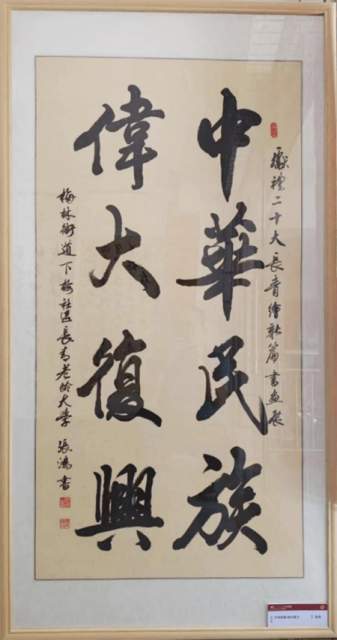 獻禮二十大長青繪新篇書畫展
中華民族
偉大復興
梅林街道下梅社區長青老齡大學 張鴻書